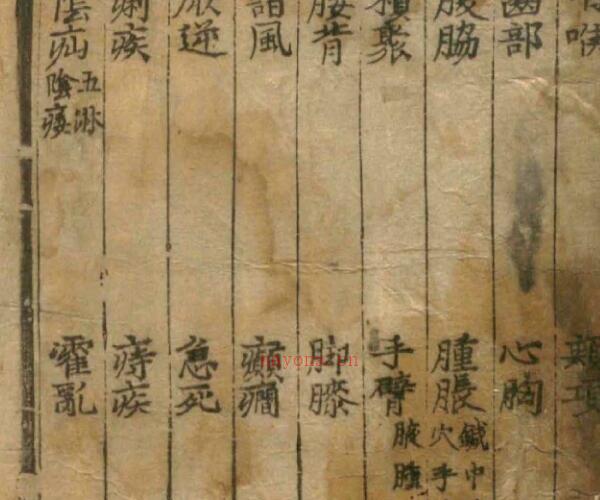 喉 項
齒部 心胸
腹脇 腫脹 鍼中 穴手
積聚 手臂 腋腫
腰背 脚膝
諸風 癲癇
厥逆 急死
痢疾 痔疾
陰疝 五淋 陰痿 霍亂